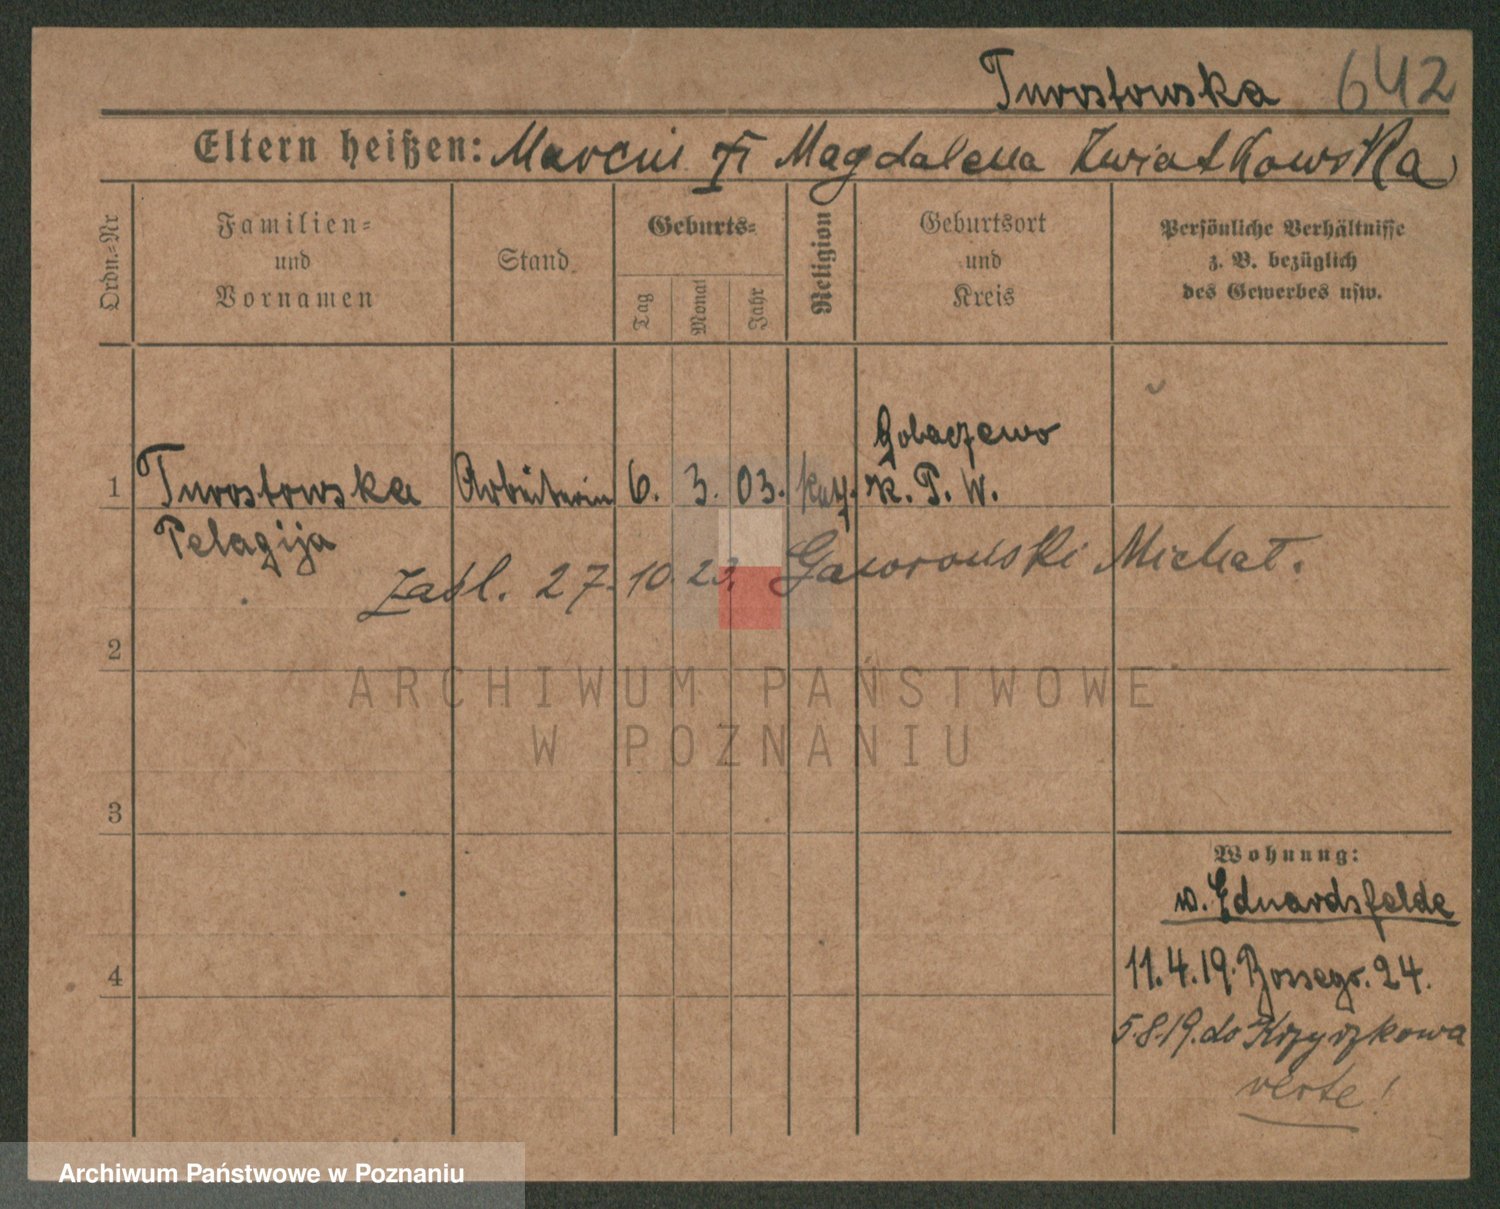 Turostowska 642
Eltern heißen: Marcin i Magdalena Kwiatkowska
Ordn.-Nr
Familien-
und
Vornamen
Stand
Geburts-
Tag
Monat
Jahr
Religion
Geburtsort
und
Kreis
Persönliche Verhältnisse
z. B. bezüglich
des Gewerbes usw.
Gołaczewo
1 Turostowska Arbeiterin 6. 3. 03. kath. K. P. W.
Pelagija
zaśl. 27.10.23. Gaworowski Michał.
2
ARCHIWUM PAŃSTWOWE
W POZNANIU
3
4
Wohnung:
w. Eduardsfelde
11.4.19. Bossegr. 24.
5.8.19. do Krzyżkowa
verte!
Archiwum Państwowe w Poznaniu